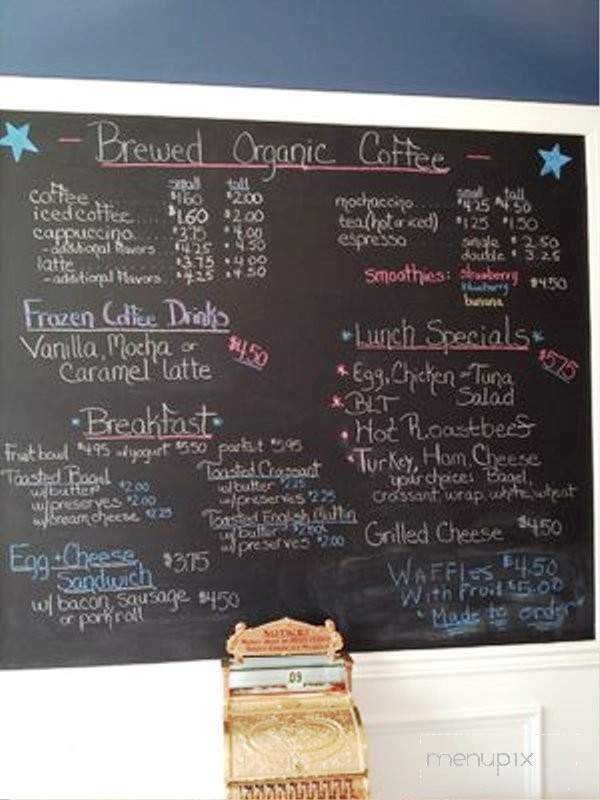 Brewed Organic Coffee
small tall
coffee $1.60 $2.00
iced coffee $1.60 $2.00
cappuccino $3.75 $4.00
- additional flavors $4.25 $4.50
latte $3.75 $4.00
- additional flavors $4.25 $4.50
small tall
mochaccino $4.25 $4.50
tea (hot or iced) $1.25 $1.50
espresso single $2.50
double $3.25
smoothies: strawberry
blueberry $4.50
banana
Frozen Coffee Drinks
Vanilla, Mocha or $4.50
Caramel latte
Lunch Specials
$5.75
Egg, Chicken - Tuna
Salad
BLT
Hot Roastbeef
Turkey, Ham, Cheese
your choice: Bagel,
croissant, wrap, white, wheat
Grilled Cheese $4.50
Waffles $4.50
With Fruit $5.00
"Made to order"
Breakfast
Fruit bowl $4.95 w/yogurt $5.50 parfait $5.95
Toasted Bagel
w/butter $2.00
w/preserves $2.00
w/cream cheese $2.25
Toasted Croissant
w/butter $2.25
w/preserves $2.25
Toasted English Muffin
w/butter
w/preserves $2.00
Egg + Cheese $3.75
Sandwich
w/ bacon, sausage $4.50
or pork roll
NOTICE!
09
menupix